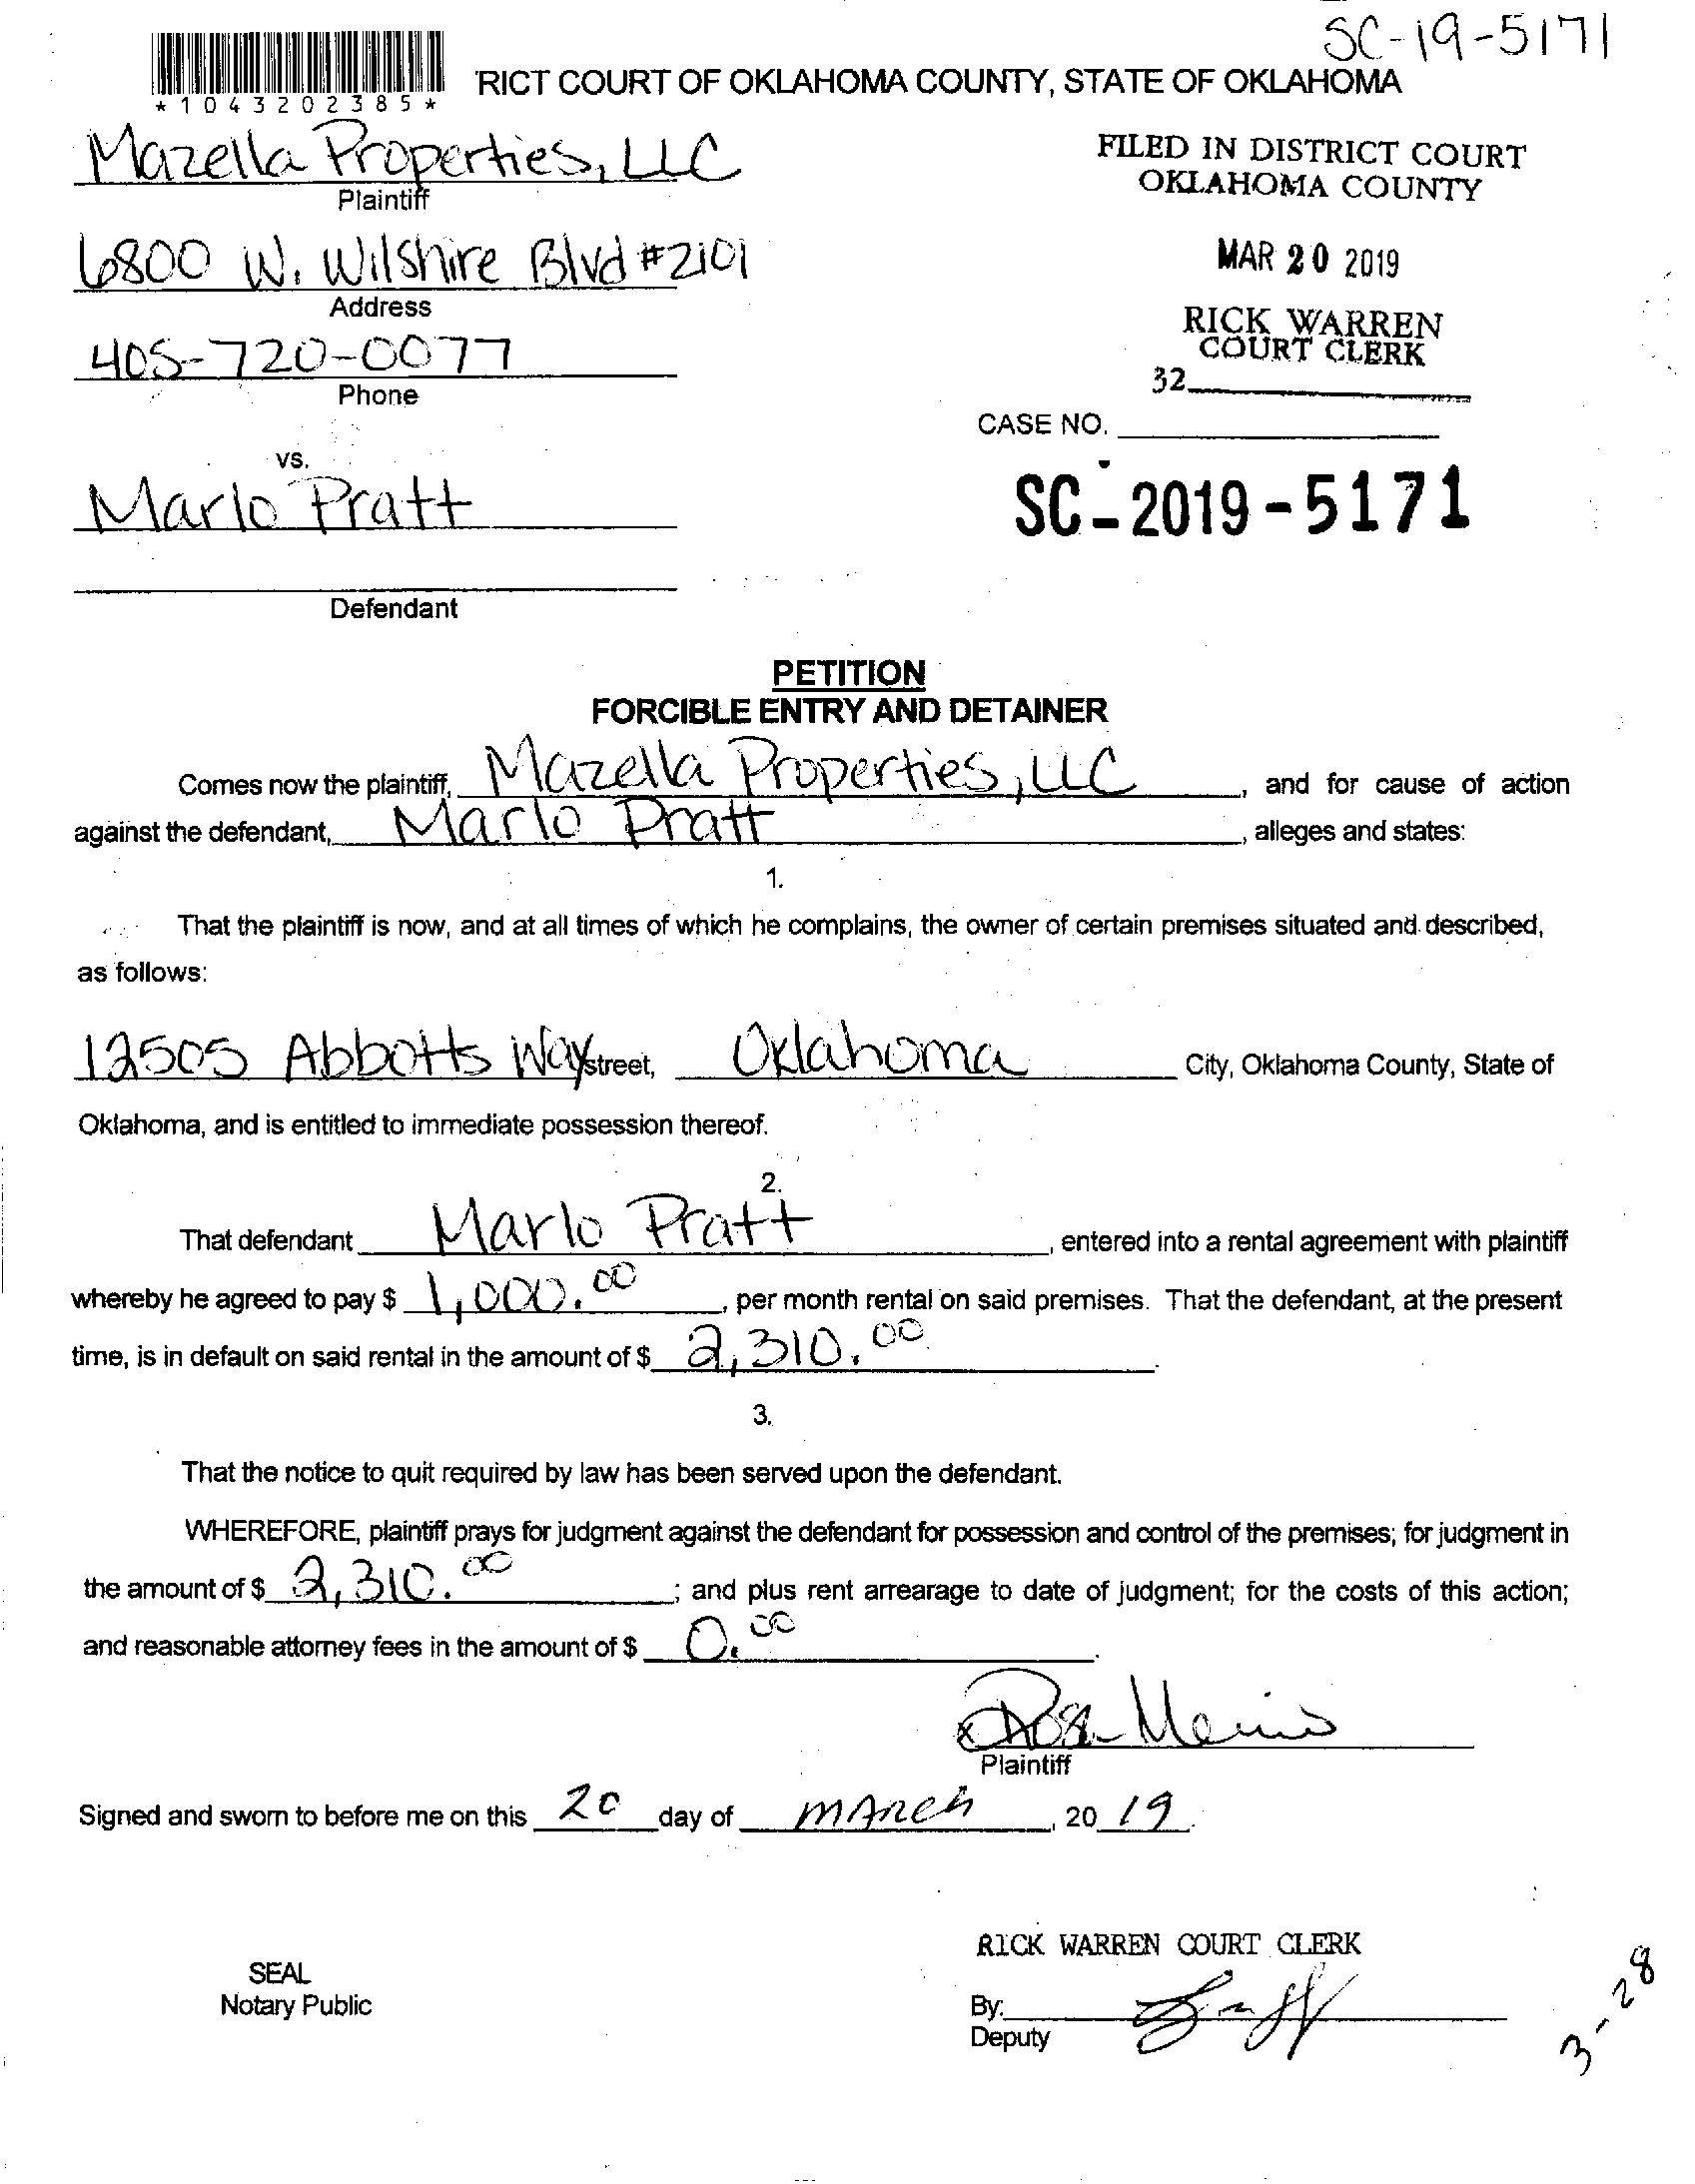 SC-19-5171
*1043202385*
RICT COURT OF OKLAHOMA COUNTY, STATE OF OKLAHOMA
Mazella Properties, LLC
Plaintiff
FILED IN DISTRICT COURT
OKLAHOMA COUNTY
6800 W. Wilshire Blvd #2101
Address
MAR 20 2019
405-720-0077
Phone
RICK WARREN
COURT CLERK
32
CASE NO.
vs.
Marlo Pratt
SC-2019-5171
Defendant
PETITION
FORCIBLE ENTRY AND DETAINER
Comes now the plaintiff, Mazella Properties, LLC, and for cause of action
against the defendant, Marlo Pratt, alleges and states:
1.
That the plaintiff is now, and at all times of which he complains, the owner of certain premises situated and described,
as follows:
12505 Abbotts Way street, Oklahoma City, Oklahoma County, State of
Oklahoma, and is entitled to immediate possession thereof.
2.
That defendant Marlo Pratt, entered into a rental agreement with plaintiff
whereby he agreed to pay $ 1,000.00, per month rental on said premises. That the defendant, at the present
time, is in default on said rental in the amount of $ 2,310.00.
3.
That the notice to quit required by law has been served upon the defendant.
WHEREFORE, plaintiff prays for judgment against the defendant for possession and control of the premises; for judgment in
the amount of $ 2,310.00; and plus rent arrearage to date of judgment; for the costs of this action;
and reasonable attorney fees in the amount of $ 0.00.
x
Plaintiff
Signed and sworn to before me on this 20 day of March, 2019.
RICK WARREN COURT CLERK
SEAL
Notary Public
By:
Deputy
3-28